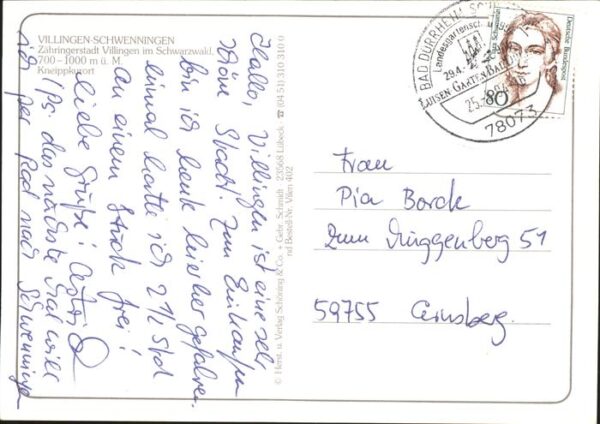 VILLINGEN-SCHWENNINGEN
Zähringerstadt Villingen im Schwarzwald
700 – 1000 m ü. M.
Kneippkurort
Hallo, Villingen ist eine sehr
schöne Stadt. Zum Einkaufen
bin ich heute hierher gefahren.
einmal hatte ich 2 1/2 Std
an einem Stück frei!
Liebe Grüße! Astrid
(Ps: das nächste Mal will
ich per Rad nach Schwenningen
© Herst. u. Verlag Schöning & Co. + Gebr. Schmidt · 23568 Lübeck · ☎ (04 51) 310 310
nd Bestell-Nr. Vilen 402
BAD DÜRRHEIM
Landesgartenschau
29.4.
LUISEN GARTEN BADEN
25.
78073
Deutsche Bundespost
80
Frau
Pia Borck
Zum Müggenberg 51
59755 Arnsberg.